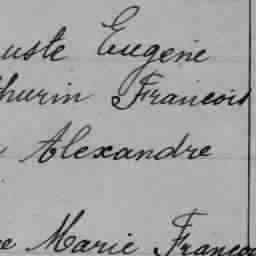 uste Eugène
hurin Francois
Alexandre
e Marie Franço